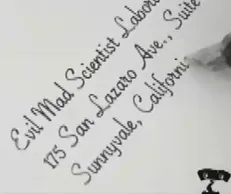 Evil Mad Scientist Labor
175 San Lazaro Ave., Suite
Sunnyvale, Californi